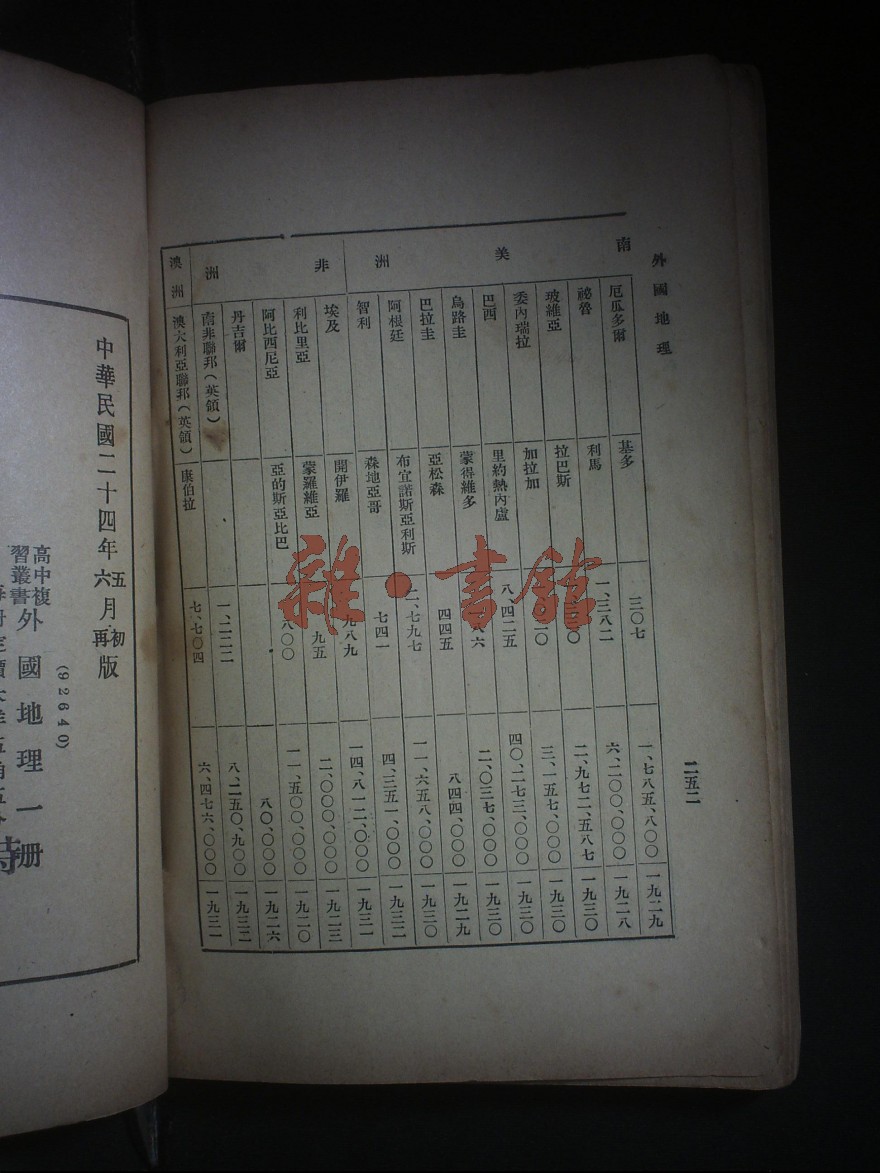 外國地理
二五二
南美洲
厄瓜多爾 基多 三〇七 一、七八五、八〇〇 一九二九
祕魯 利馬 一、三八二 六、二〇〇、〇〇〇 一九二八
玻維亞 拉巴斯 二、九七二、五八七 一九三〇
委內瑞拉 加拉加 三、一五七、〇〇〇 一九三〇
巴西 里約熱內盧 八、四二五 四〇、二七三、〇〇〇 一九三〇
烏路圭 蒙得維多 二、〇三七、〇〇〇 一九三〇
巴拉圭 亞松森 四四五 八四四、〇〇〇 一九二九
阿根廷 布宜諾斯亞利斯 二、七九七 一一、六五八、〇〇〇 一九三〇
智利 森地亞哥 七四一 四、三五一、〇〇〇 一九三二
非洲
埃及 開伊羅 九八九 一四、八一二、〇〇〇 一九三一
利比里亞 蒙羅維亞 九五 二、〇〇〇、〇〇〇 一九二三
阿比西尼亞 亞的斯亞比巴 八〇〇 一一、五〇〇、〇〇〇 一九二〇
丹吉爾 八〇、〇〇〇 一九二六
南非聯邦(英領) 一、二二二 八、二五〇、九〇〇 一九三二
澳洲
澳大利亞聯邦(英領) 康伯拉 七、七〇四 六、四七六、〇〇〇 一九三一
中華民國二十四年五月初版
六 再
(92640)
高中複習叢書 外國地理一册
雜·書館